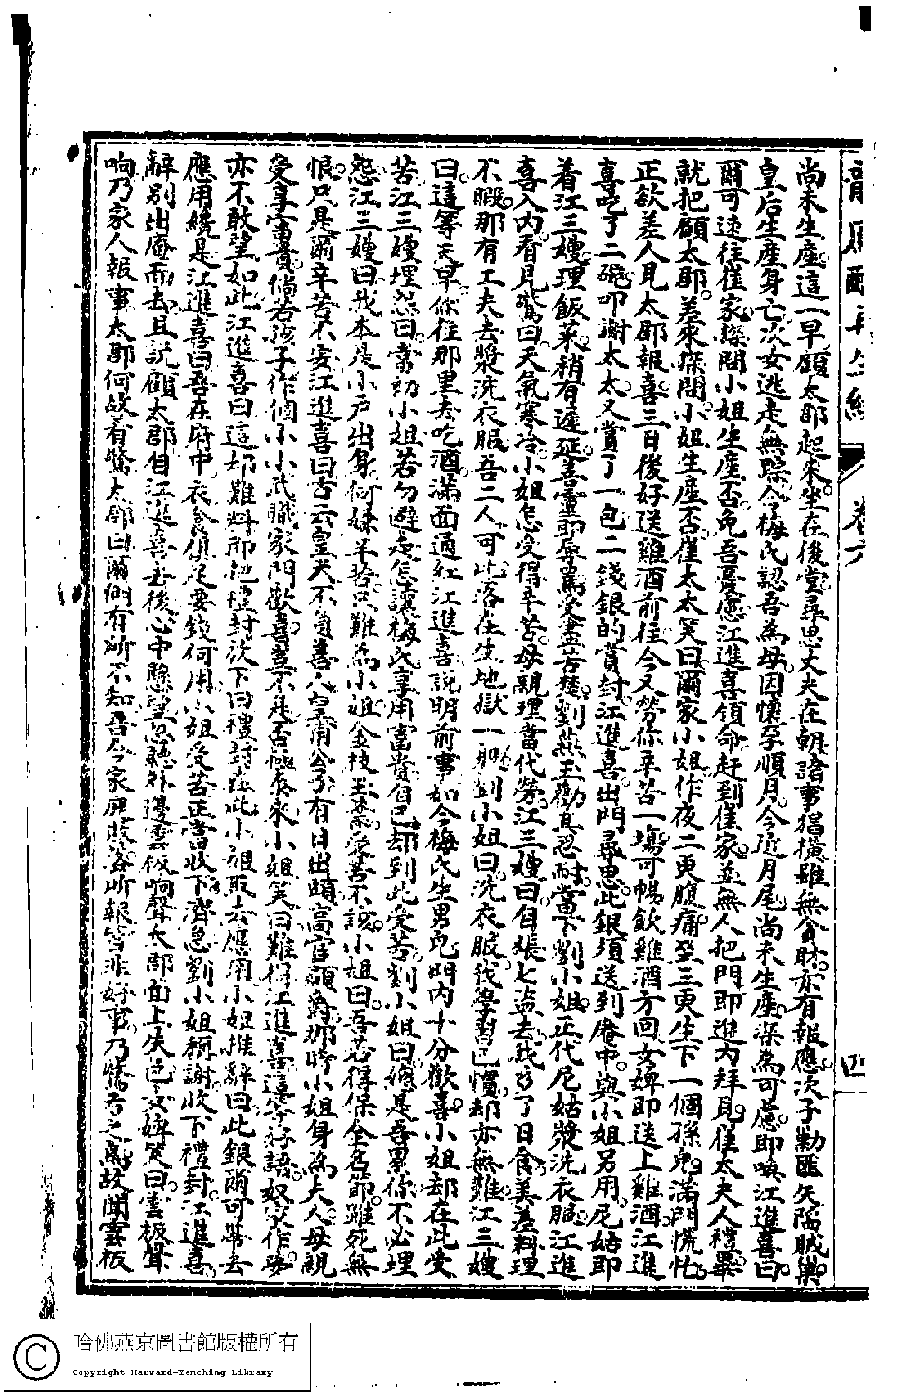 龍鳳配再生緣 卷六 四
尚未生產這一早顧太郡起來坐在後堂尋思丈夫在朝諸事猖橫雖無貪財亦有報應次子勦匪失陷賊巢
皇后生產身亡次女逃走無踪今梅氏認吾為母因懷孕順月今近月尾尚未生產深為可慮即喚江進喜曰
爾可速往崔家探問小姐生產否免吾憂慮江進喜領命赶到崔家並無人把門即進內拜見崔太夫人禮畢
就把顧太郡差來探問小姐生產否崔太太笑曰爾家小姐作夜二更腹痛至三更生下一個孫兒滿門慌忙
正欲差人見太郡報喜三日後好送雞酒前往今又勞你辛苦一塲可暢飲雞酒方回女婢即送上雞酒江進
喜吃了二碗叩謝太太又賞了一包二錢銀的賞封江進喜出門尋思此銀項送到庵中與小姐另用尼姑即
着江三嫂理飯菜稍有遲延善靈即辱罵受盡苦楚劉燕玉勸其忍耐當下劉小姐正代尼姑漿洗衣服江進
喜入內看見驚曰天氣寒冷小姐怎受得辛苦母親理當代勞江三嫂曰自張七盜去我了日食美羞料理
不暇那有工夫去漿洗衣服吾二人可比落在生地獄一般劉小姐曰洗衣服我學習已慣却亦無難江三嫂
曰這等天早你往那里去吃酒滿面通紅江進喜說明前事如今梅氏生男兒門內十分歡喜小姐却在此受
苦江三嫂埋怨曰當初小姐若勿避走怎讓梅氏享用富貴自己却到此受苦劉小姐曰總是吾累你不必埋
怨江三嫂曰我本是小戶出身何嫌辛苦只難為小姐金枝玉葉受苦不該小姐曰吾若得保全名節雖死無
恨只是爾辛苦不安江進喜曰古云皇天不負善人皇甫公子有日出頭高官顯爵那時小姐身為夫人母親
受享富貴倘若孩子作個小小武職家門歡喜豈不是否極泰來小姐笑曰難得江進喜這等好語奴家作夢
亦不敢望如此江進喜曰這却難料即把禮封放下曰禮封在此小姐取去應用小姐推辭曰此銀爾可帶去
應用纔是江進喜曰吾在府中衣食俱足要錢何用小姐受苦正當收下濟急劉小姐稱謝收下禮封江進喜
辭別出庵而去且說顧太郡自江進喜去後心中懸望忽聽外邊雲板响聲太郡面上失色女婢笑曰雲板聲
响乃家人報事太郡何故着驚太郡曰爾們有所不知吾今家門敗落所報皆非好事乃驚弓之鳥故聞雲板
哈佛燕京圖書館版權所有
Copyright Harvard-Yenching Library